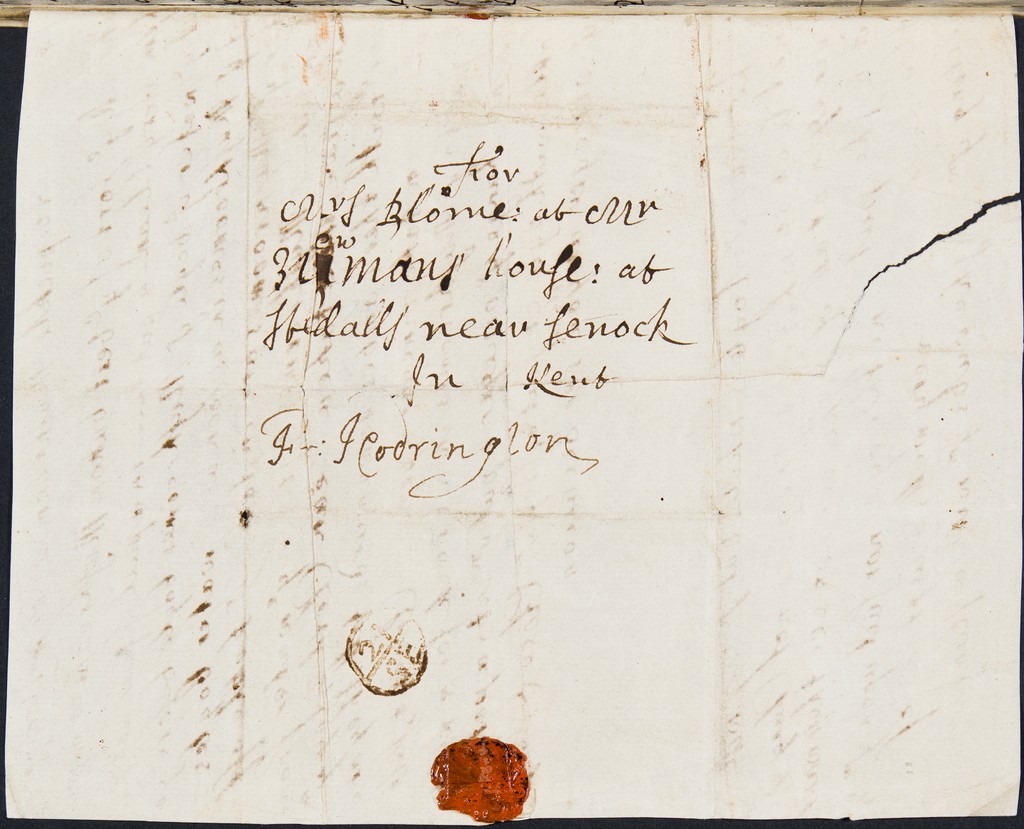 For
Mrs Blome: at Mr
Newmans house: at
stidalls near senock
In Kent
Fr: J Codrington